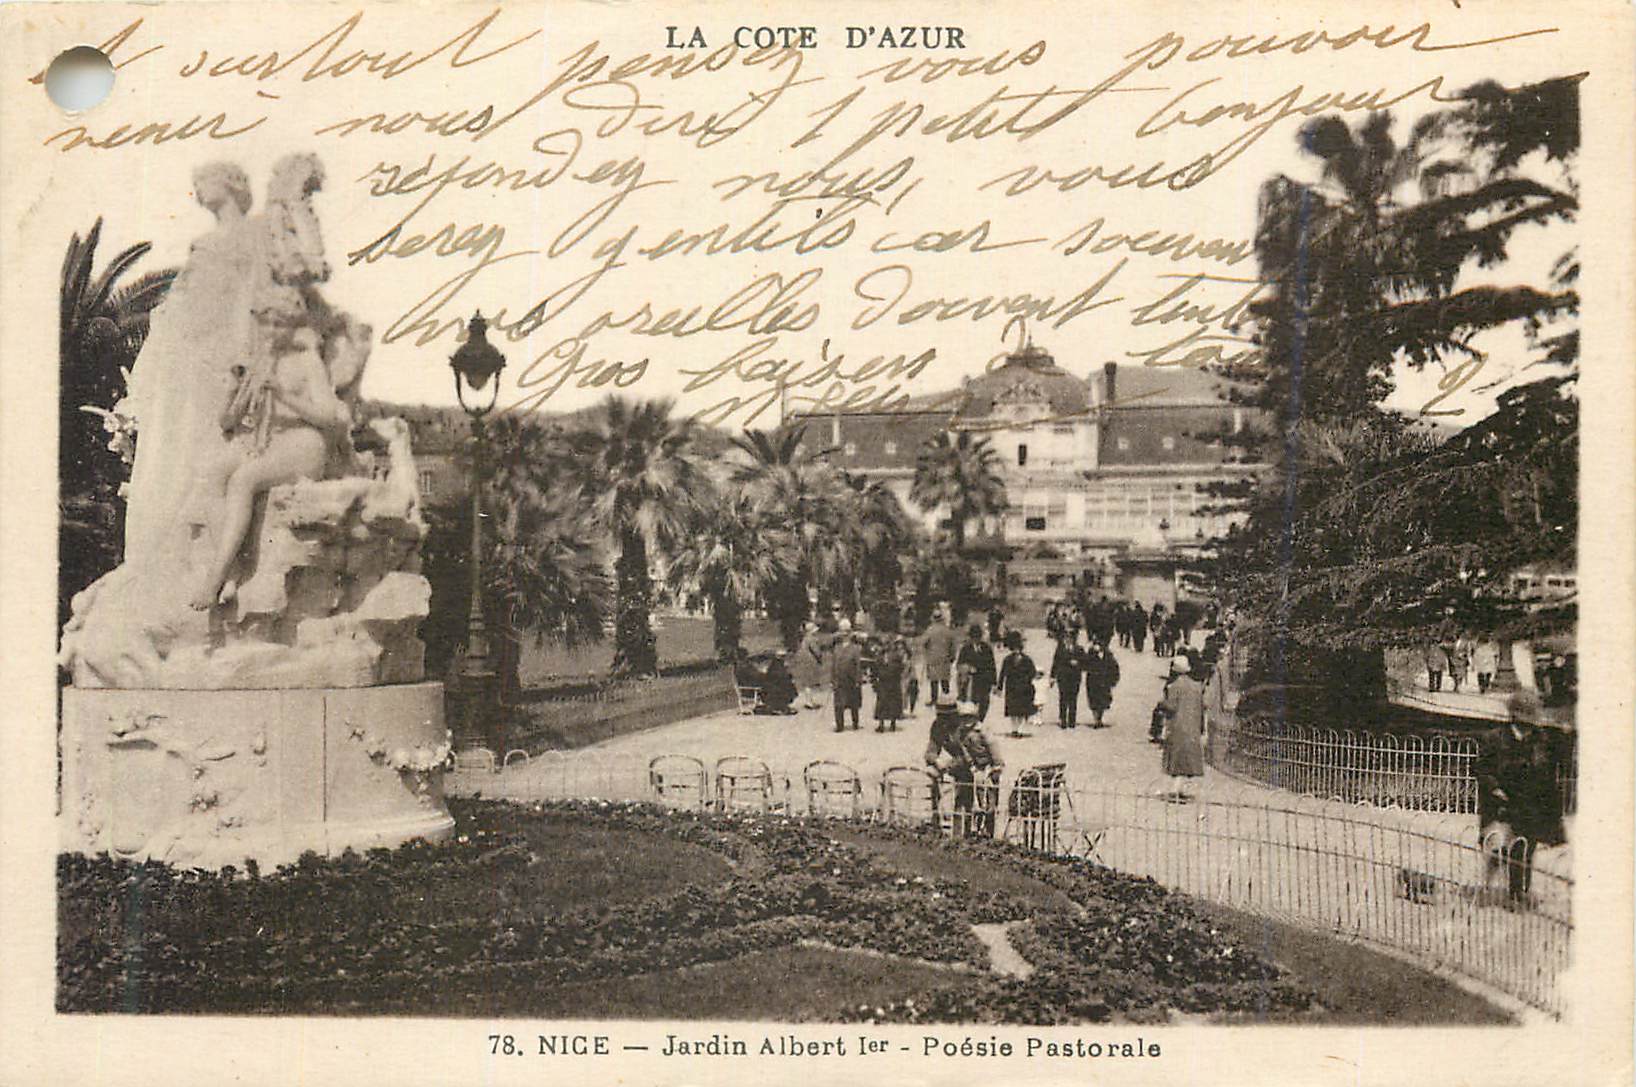 LA COTE D'AZUR
et surtout pensez vous pouvoir
venir nous dire 1 petit bonjour
répondez nous, vous
serez gentils car souvent
vos oreilles doivent tinter
Gros baisers à tous 2
78. NICE — Jardin Albert Ier - Poésie Pastorale